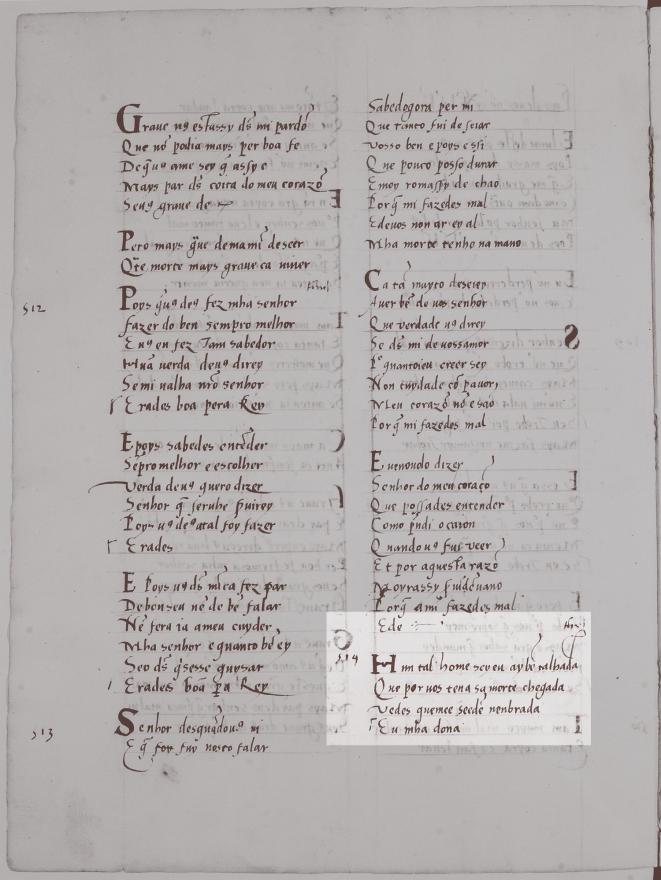 Graue uꝯ estassy ds̄ mi pardō
Que nō podia mays per boa fe
De q̄ uꝯ ame sey q̄ assy e
Mays par ds̄ coita do meu corazō
Senꝯ graue de
Pero mays q̄ue demamī descer
Q̄te morte mays graue ca uiuer
512
Poys q̄uꝯ deꝯ fez mha senhor
fazer do ben sempro melhor
E uꝯ en fez Tam sabedor
Hūa uerda deuꝯ direy
Se mi ualha nrō senhor
Erades boa pera Rey
E poys sabedes entēder
Sēpro melhor e escolher
Verda deuꝯ quero dizer
Senhor q̄ seruhe s̄uirey
Poys uꝯ deꝯ atal foy fazer
Erades
E Poys uꝯ ds̄ nūca fez par
De bon sen nē de bē falar
Nē fera ia ameu cuyder
Mha senhor e quanto bē ey
Seo ds̄ q̄sesse guysar
Erades boa pa Rey
513
Senhor desquādouꝯ ui
E q̄ foy fuy uosco falar
Sabedogora per mi
Que tanto fui deseiar
Uosso ben e poys e ssi
Que pouco posso durar
E moyromassy de chao
Porq̄ mi fazedes mal
E deuos non ar ey al
Mha morte tenho na mano
Ca tā muyto deseiey
Auer bē de uos senhor
Que uerdade uꝯ direy
Se ds̄ mi de uossamor
Pꝯ quantoieu creer sey
Non cuydade cō pauor
Meu corazō nō e sāo
Porq̄ mi fazedes mal
E uenoudo dizer
Senhor do meu coraçō
Que possades entender
Como p̄ndi o caion
Quando uꝯ fui ueer
Et por aquesta razō
Moyrassy s̄uīdēuano
Porq̄ ami fazedes mal
Ede
514
Hum tal home sey eu ay bē talhada
Que por uos ten a sa morte chegada
Vedes quem e e seedē nenbrada
Eu mha dona